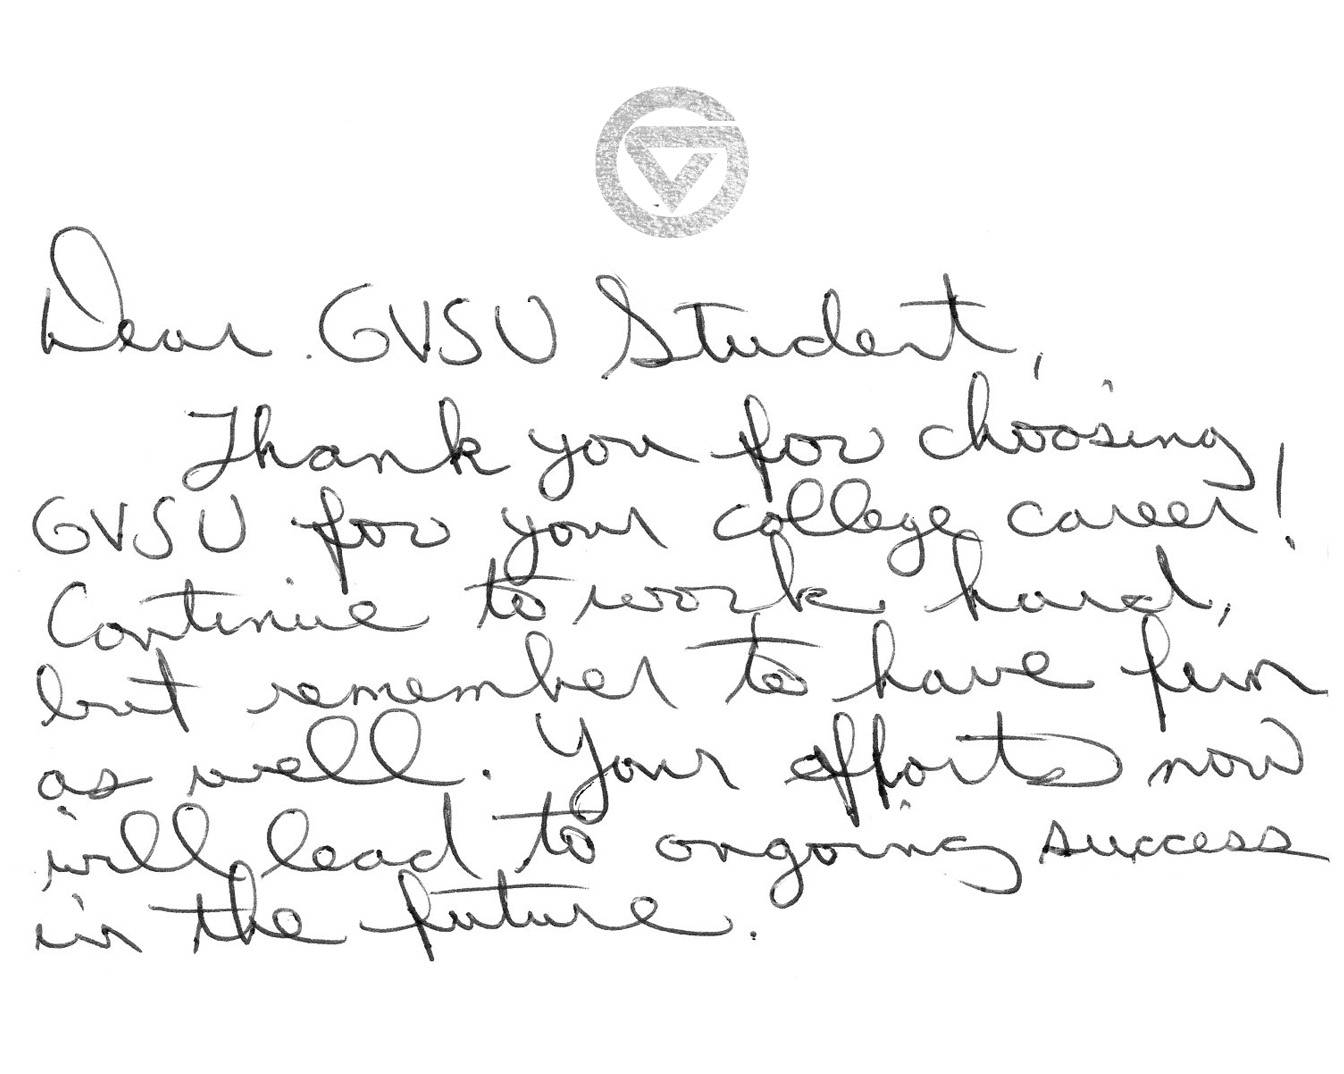 Dear GVSU Student,
Thank you for choosing
GVSU for your college career!
Continue to work hard,
but remember to have fun
as well. Your efforts now
will lead to ongoing success
in the future.